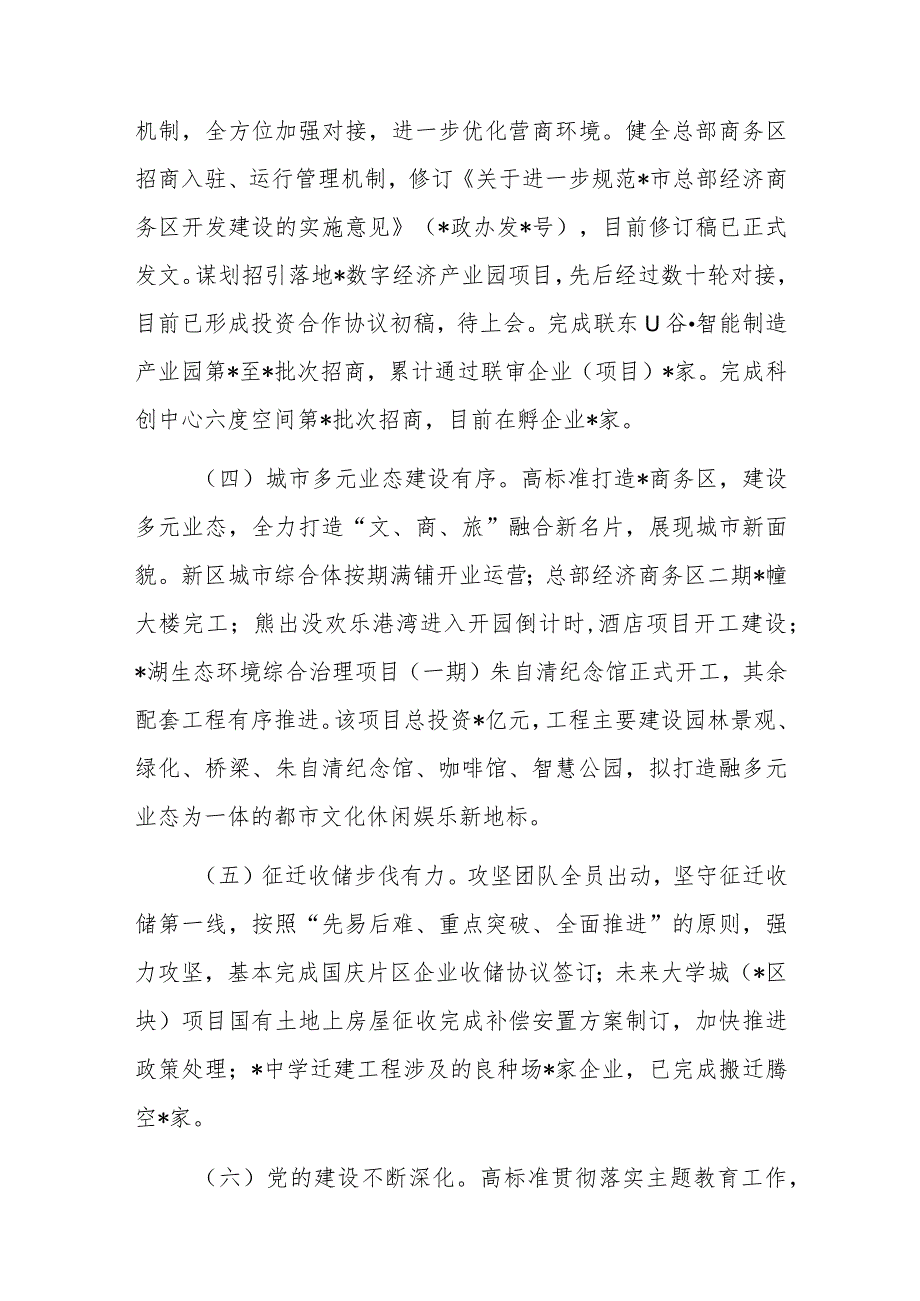 机制，全方位加强对接，进一步优化营商环境。健全总部商务区
招商入驻、运行管理机制，修订《关于进一步规范*市总部经济商
务区开发建设的实施意见》（*政办发*号），目前修订稿已正式
发文。谋划招引落地*数字经济产业园项目，先后经过数十轮对接，
目前已形成投资合作协议初稿，待上会。完成联东 U 谷•智能制造
产业园第*至*批次招商，累计通过联审企业（项目）*家。完成科
创中心六度空间第*批次招商，目前在孵企业*家。
（四）城市多元业态建设有序。高标准打造*商务区，建设
多元业态，全力打造“文、商、旅”融合新名片，展现城市新面
貌。新区城市综合体按期满铺开业运营；总部经济商务区二期*幢
大楼完工；熊出没欢乐港湾进入开园倒计时,酒店项目开工建设；
*湖生态环境综合治理项目（一期）朱自清纪念馆正式开工，其余
配套工程有序推进。该项目总投资*亿元，工程主要建设园林景观、
绿化、桥梁、朱自清纪念馆、咖啡馆、智慧公园，拟打造融多元
业态为一体的都市文化休闲娱乐新地标。
（五）征迁收储步伐有力。攻坚团队全员出动，坚守征迁收
储第一线，按照“先易后难、重点突破、全面推进”的原则，强
力攻坚，基本完成国庆片区企业收储协议签订；未来大学城（*区
块）项目国有土地上房屋征收完成补偿安置方案制订，加快推进
政策处理；*中学迁建工程涉及的良种场*家企业，已完成搬迁腾
空*家。
（六）党的建设不断深化。高标准贯彻落实主题教育工作，